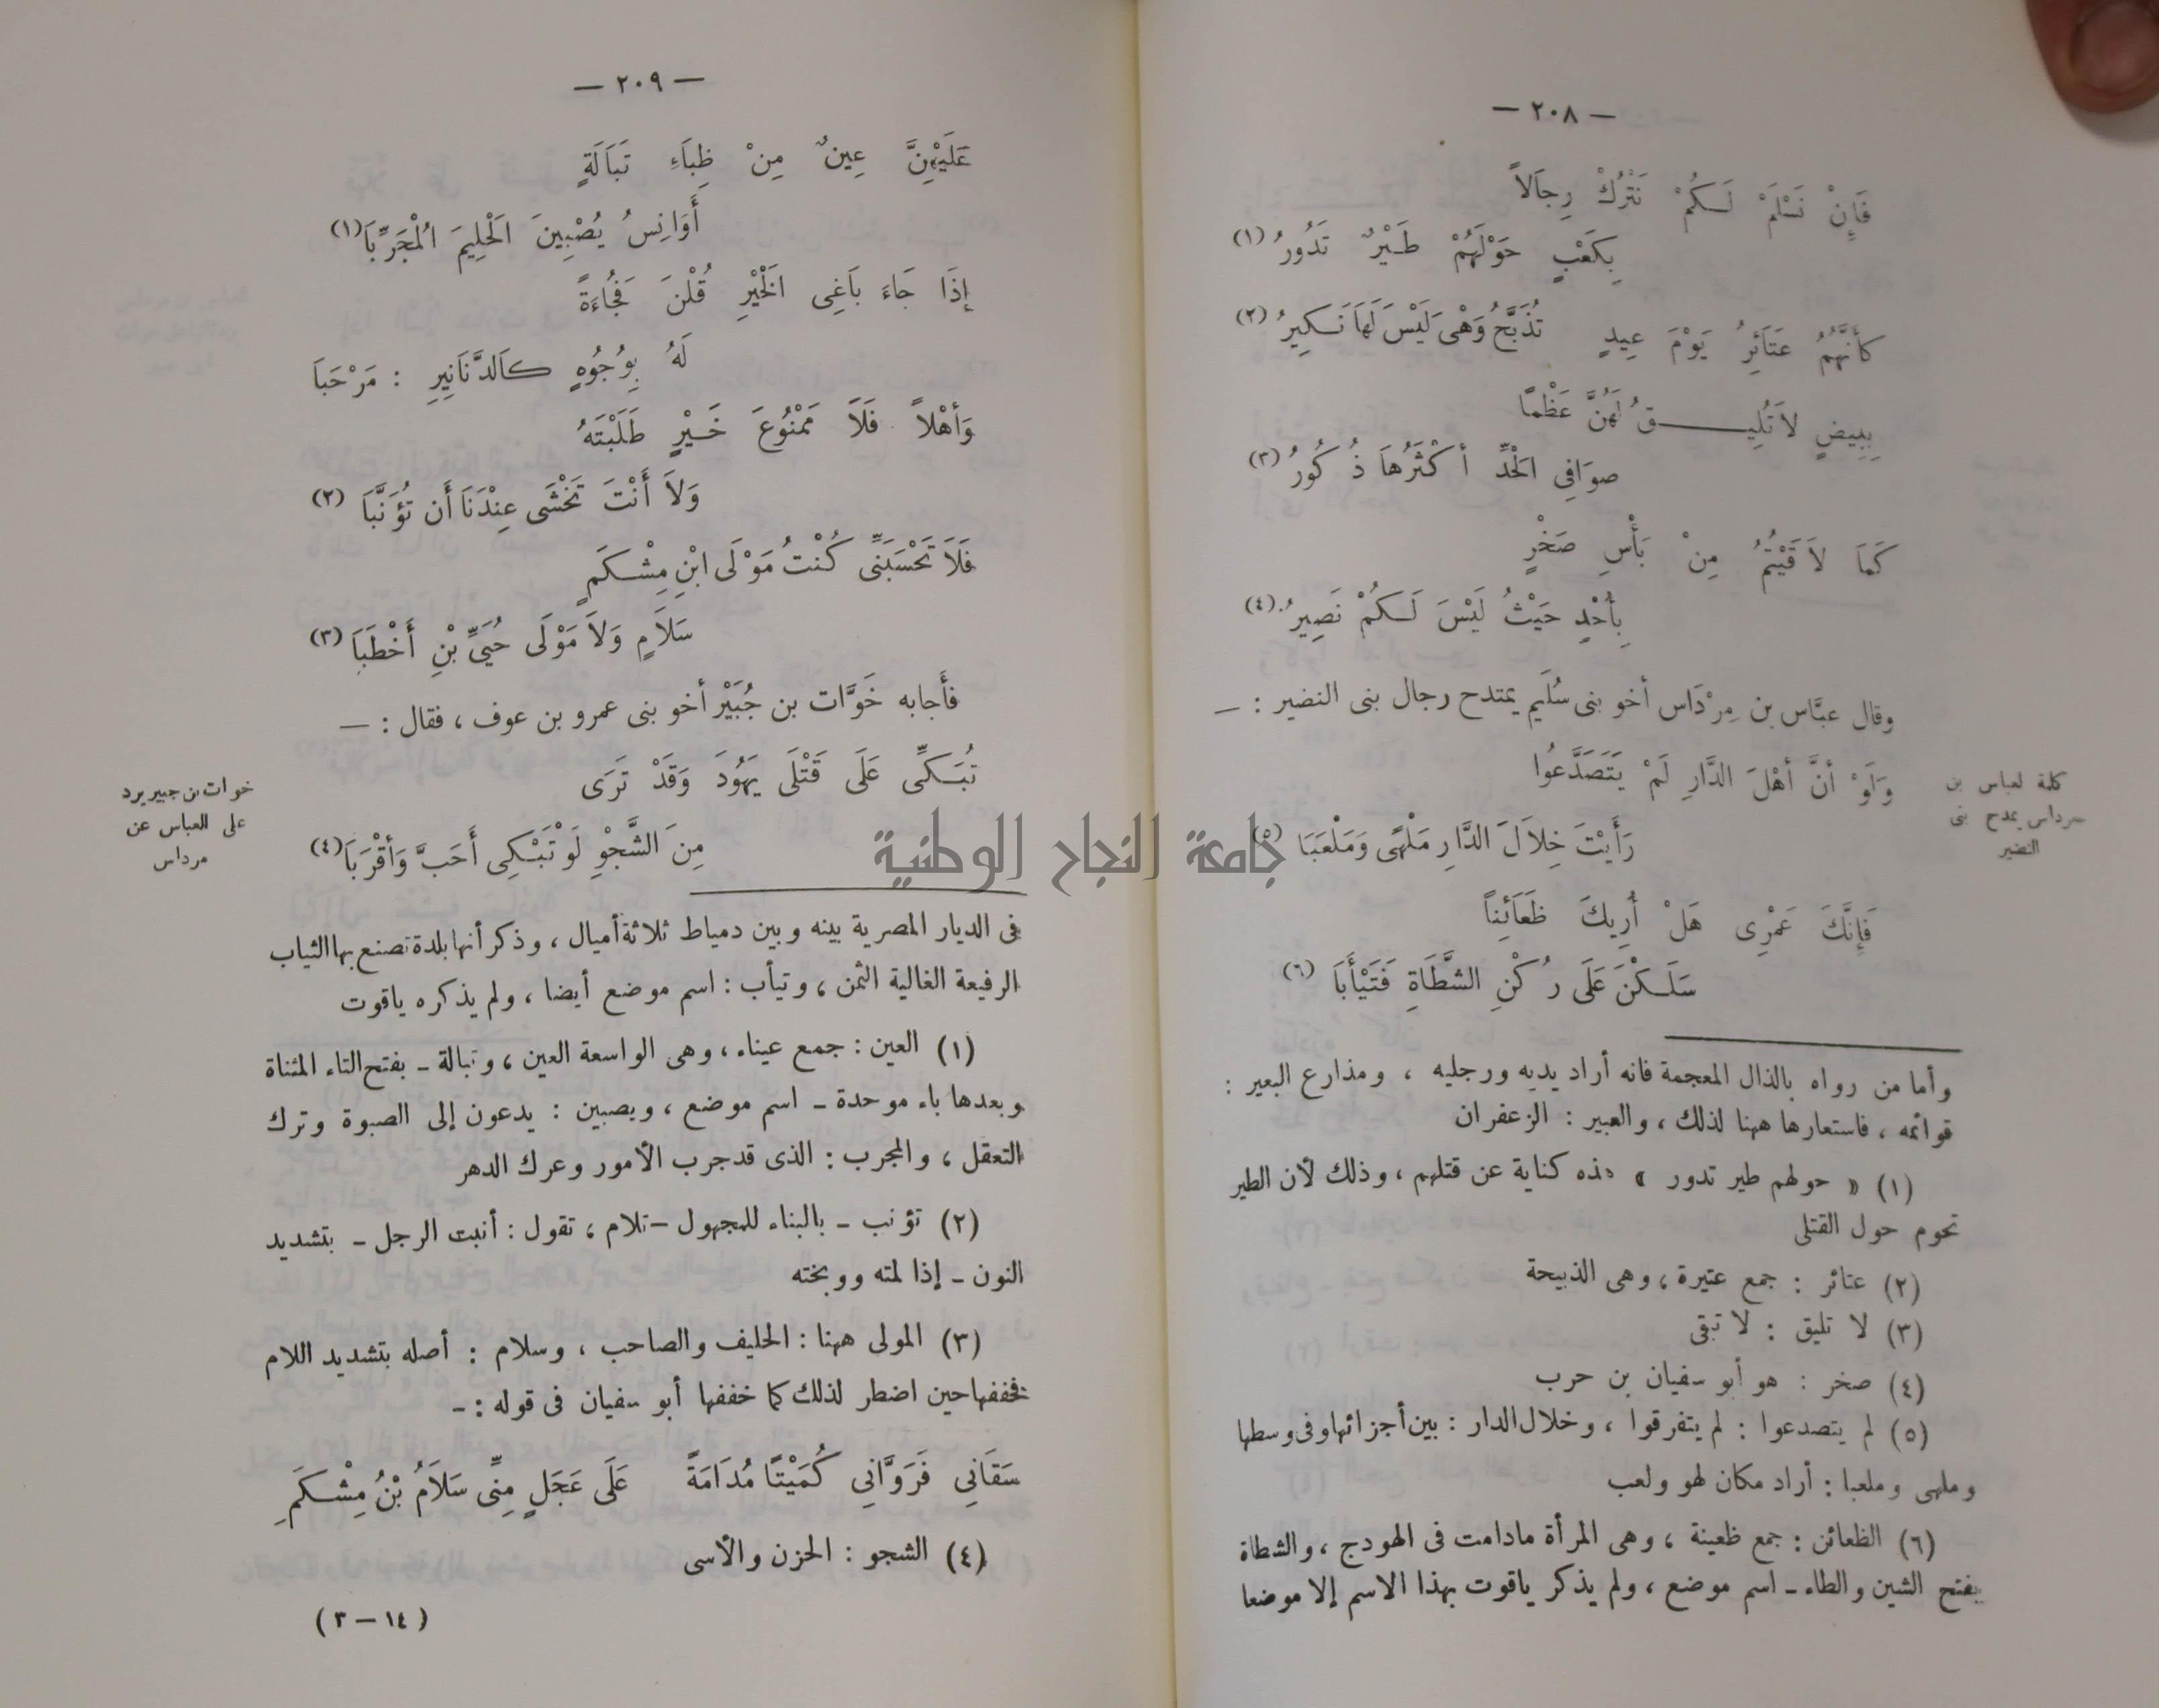 — ٢٠٨ —
فَإِنْ نَسْلَمْ لَكُمْ نَتْرُكْ رِجَالاً
بِكَعْبٍ حَوْلَهُمْ طَيْرٌ تَدُورُ (١)
كأَنَّهُمُ عَتَائِرُ يَوْمَ عِيدٍ تُذَبَّحُ وَهْىَ لَيْسَ لَهَا نَكِيرُ (٢)
بِبِيضٍ لاَ تُلِيقُ لَهُنَّ عَظْمًا
صوَافِى الْحَدِّ أكْثَرُهَا ذُكُورُ (٣)
كَمَا لاَقَيْتُمُ مِنْ بَأْسِ صَخْرٍ
بِأُحْدٍ حَيْثُ لَيْسَ لَكُمْ نَصِيرُ (٤)
وقال عبَّاس بن مِرْدَاس أخو بنى سُلَيم يمتدح رجال بنى النضير : —
كلمة لعباس بن
مرداس يمدح بنى
النضير
وَلَوْ أنَّ أهْلَ الدَّارِ لَمْ يَتَصَدَّعُوا
رَأَيْتَ خِلاَلَ الدَّارِ مَلْهًى وَمَلْعَبَا (٥)
فَإِنَّكَ عَمْرِى هَلْ أُرِيكَ ظَعَائِناً
سَلَكْنَ عَلَى رُكْنِ الشَّطَاةِ فَتَيْأَبَا (٦)
وأما من رواه بالذال المعجمة فانه أراد يديه ورجليه ، ومذارع البعير :
قوائمه ، فاستعارها ههنا لذلك ، والعبير : الزعفران
(١) « حولهم طير تدور » هذه كناية عن قتلهم ، وذلك لأن الطير
تحوم حول القتلى
(٢) عتائر : جمع عتيرة ، وهى الذبيحة
(٣) لا تليق : لا تبقى
(٤) صخر : هو أبو سفيان بن حرب
(٥) لم يتصدعوا : لم يتفرقوا ، وخلال الدار : بين أجزائها وفى وسطها
وملهى وملعبا : أراد مكان لهو ولعب
(٦) الظعائن : جمع ظعينة ، وهى المرأة مادامت فى الهودج ، والشطاة
بفتح الشين والطاء ـ اسم موضع ، ولم يذكر ياقوت بهذا الاسم إلا موضعا
— ٢٠٩ —
عَلَيْهِنَّ عِينٌ مِنْ ظِبَاءِ تَبَالَةٍ
أَوَانِسُ يُصْبِينَ الْحَلِيمَ الْمُجَرِّبَا (١)
إذَا جَاءَ بَاغِى الْخَيْرِ قُلْنَ فُجَاءَةً
لَهُ بِوُجُوهٍ كَالدَّنَانِيرِ : مَرْحَبَا
وَأهْلاً فَلاَ مَمْنُوعَ خَيْرٍ طَلَبْتَهُ
وَلاَ أَنْتَ تَخْشَى عِنْدَنَا أَن تُؤَنَّبَا (٢)
فَلاَ تَحْسَبَنِّى كُنْتُ مَوْلَى ابْنِ مِشْكَمٍ
سَلاَمٍ وَلاَ مَوْلَى حُيَىِّ بْنِ أَخْطَبَا (٣)
فأَجابه خَوَّات بن جُبَيْر أخو بنى عمرو بن عوف ، فقال : —
خوات بن جبير يرد
على العباس عن
مرداس
تُبَكِّى عَلَى قَتْلَى يَهُودَ وَقَدْ تَرَى
مِنَ الشَّجْوِ لَوْ تَبْكِى أَحَبَّ وَأقْرَبَا (٤)
فى الديار المصرية بينه وبين دمياط ثلاثة أميال ، وذكر أنها بلدة تصنع بها الثياب
الرفيعة الغالية الثمن ، وتيأب : اسم موضع أيضا ، ولم يذكره ياقوت
(١) العين : جمع عيناء ، وهى الواسعة العين ، وتبالة ـ بفتح التاء المثناة
وبعدها باء موحدة ـ اسم موضع ، ويصبين : يدعون إلى الصبوة وترك
التعقل ، والمجرب : الذى قد جرب الأمور وعرك الدهر
(٢) تؤنب ـ بالبناء للمجهول ـ تلام ، تقول : أنبت الرجل ـ بتشديد
النون ـ إذا لمته ووبخته
(٣) المولى ههنا : الحليف والصاحب ، وسلام : أصله بتشديد اللام
فخففها حين اضطر لذلك كما خففها أبو سفيان فى قوله : ـ
سَقَانِي فَرَوَّانِي كُمَيْتًا مُدَامَةً عَلَى عَجَلٍ مِنِّى سَلاَمُ بْنُ مِشْكَمِ
(٤) الشجو : الحزن والأسى
( ١٤ — ٣ )
جامعة النجاح الوطنية